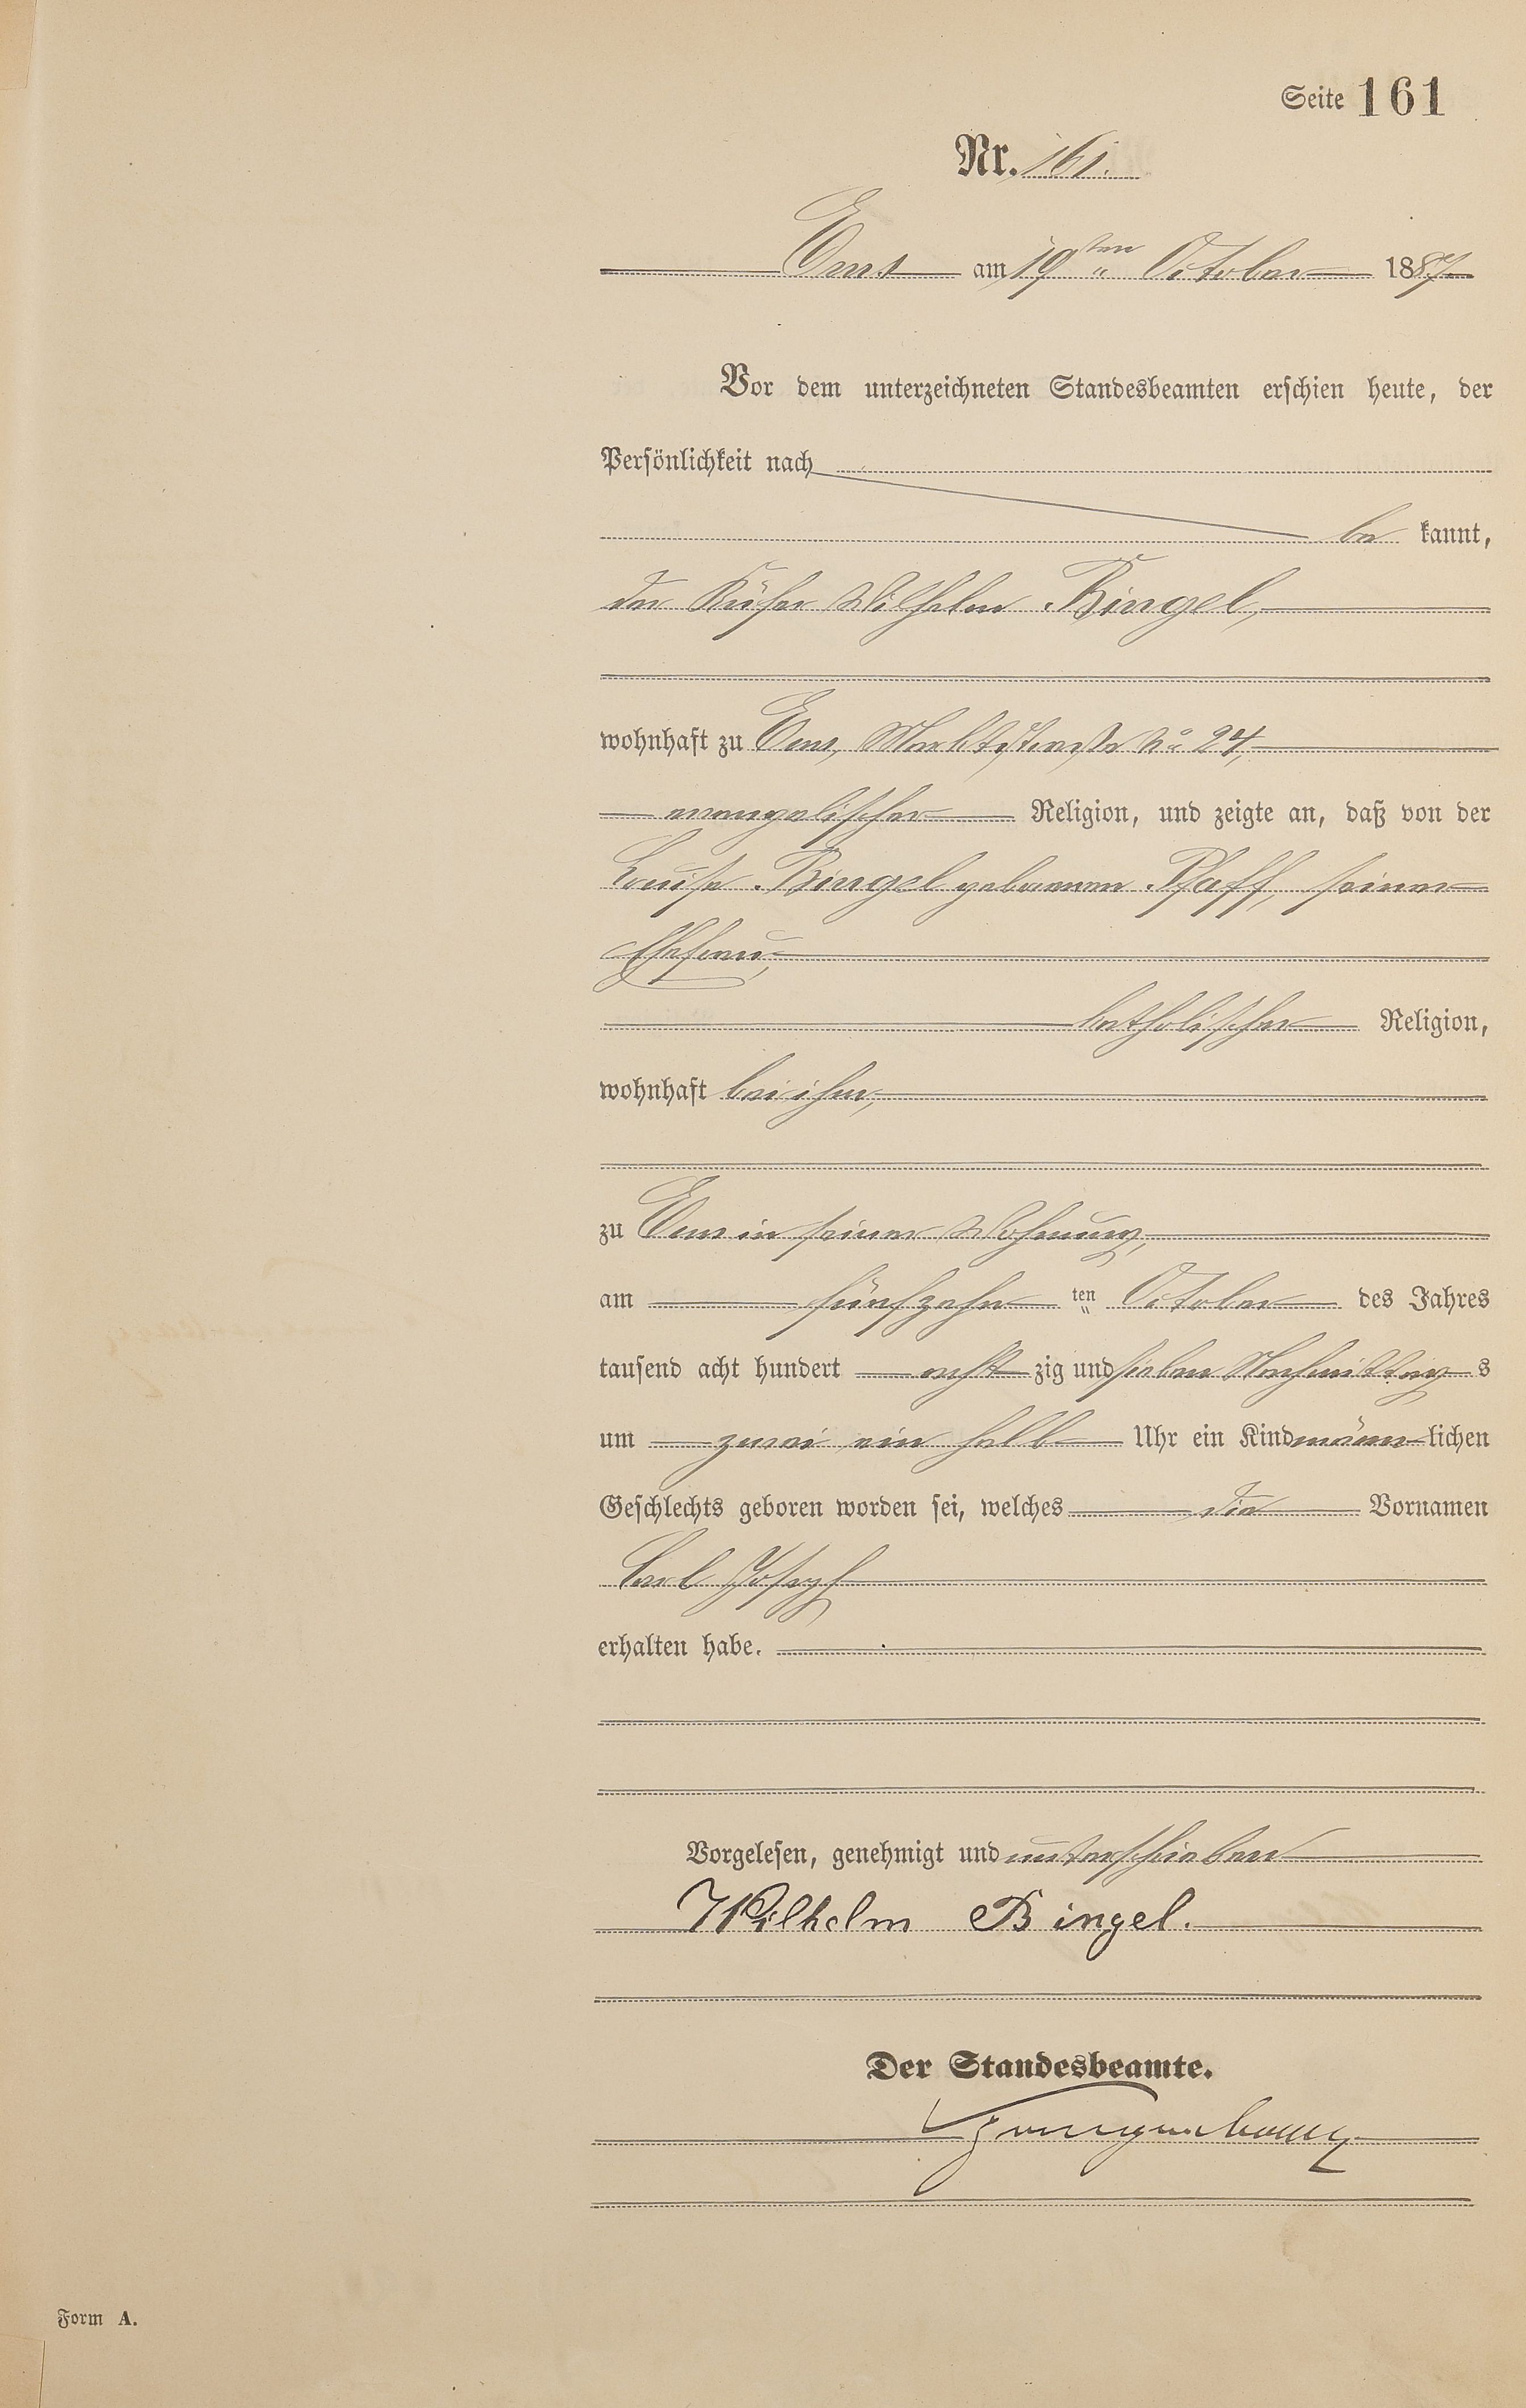 Seite 161
Nr. 161.
Ems am 19ten October 1887
Vor dem unterzeichneten Standesbeamten erschien heute, der
Persönlichkeit nach
be kannt,
der Küfer Wilhelm Bingel,
wohnhaft zu Ems, Marktstraße No 24,
evangelischer Religion, und zeigte an, daß von der
Louise Bingel geborenen Pfaff, seiner
Ehefrau,
katholischer Religion,
wohnhaft bei ihm,
zu Ems in seiner Wohnung,
am fünfzehn ten October des Jahres
tausend acht hundert acht zig und sieben Nachmittag s
um zwei ein halb Uhr ein Kind männ lichen
Geschlechts geboren worden sei, welches die Vornamen
Carl Joseph
erhalten habe.
Vorgelesen, genehmigt und unterschrieben
Wilhelm Bingel.
Der Standesbeamte.
Form A.